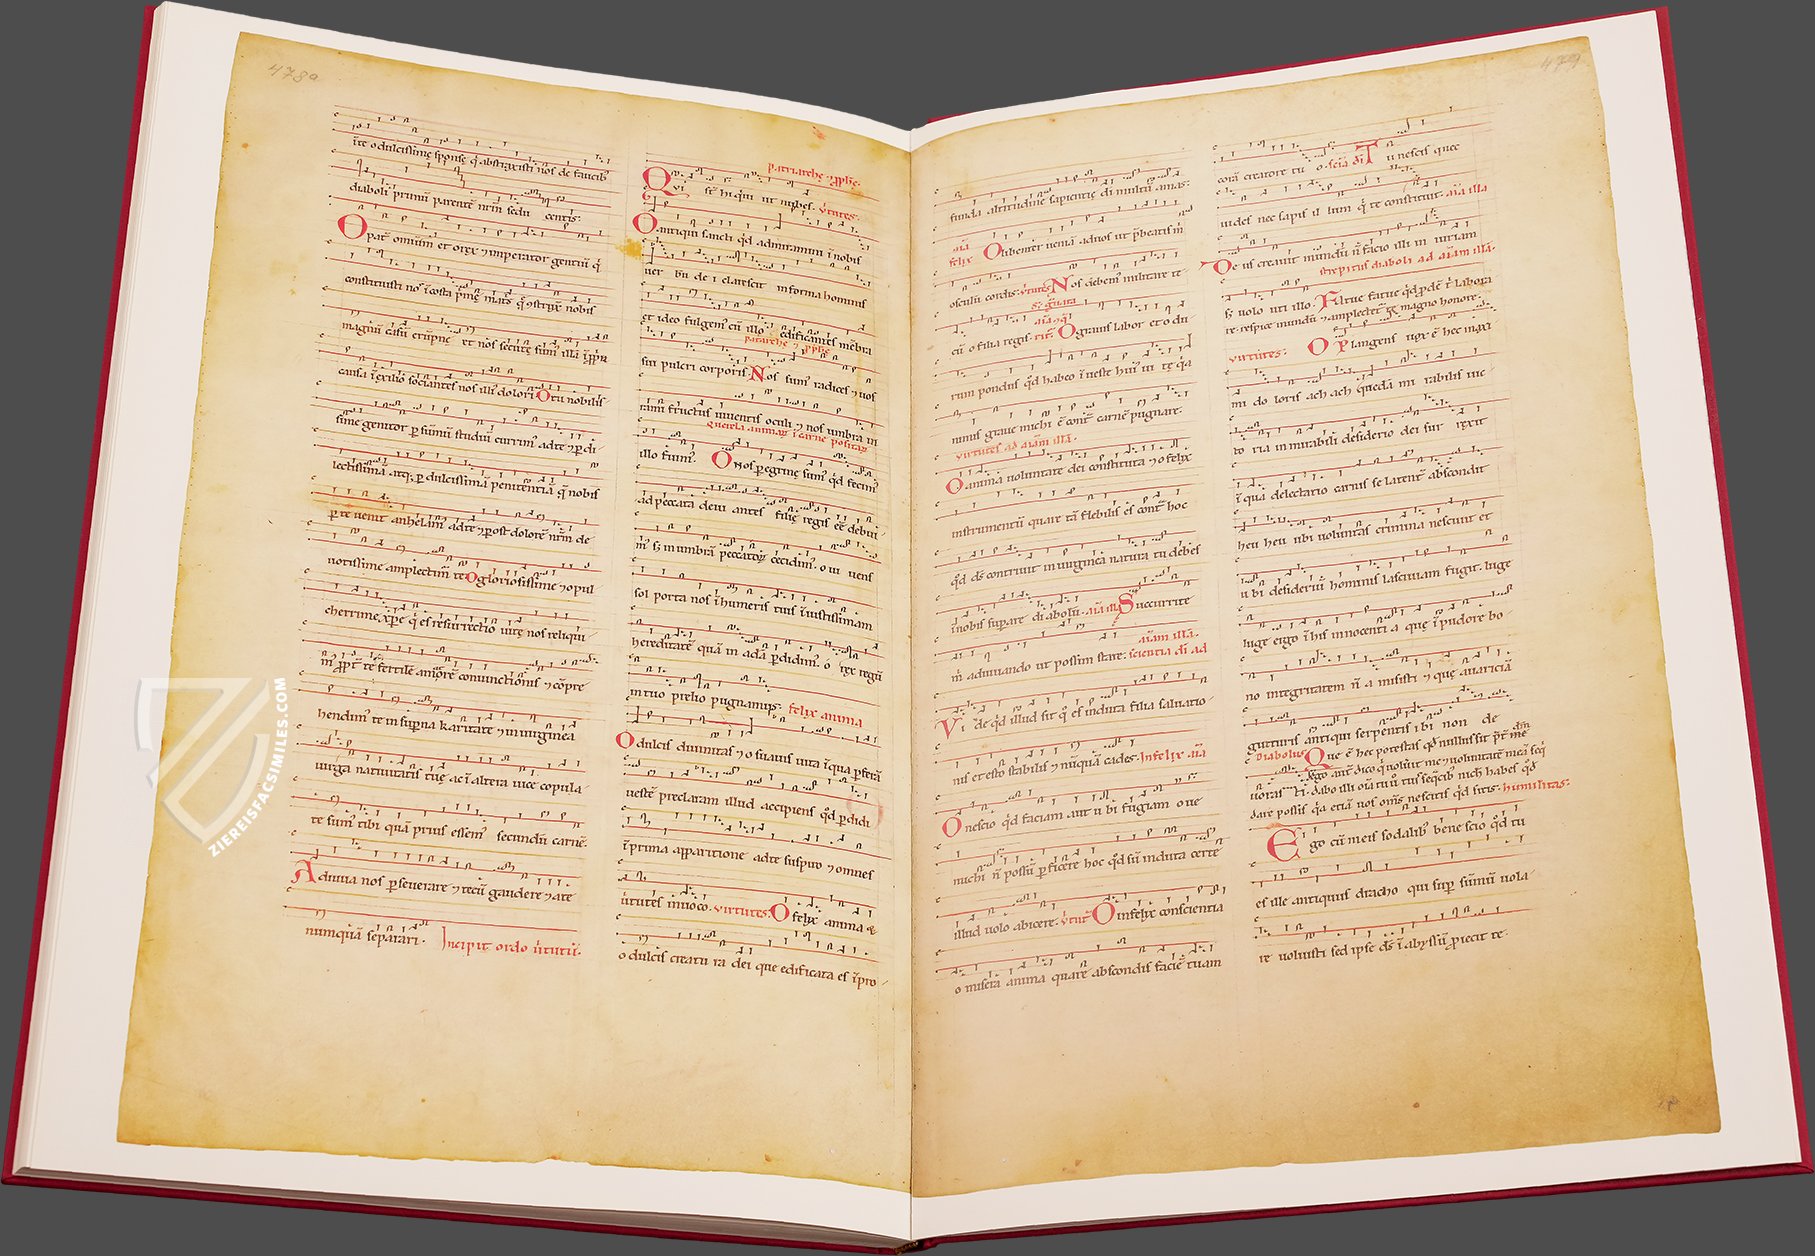 478a
ite o dulcissime sponse q̇ abstraxisti nos de faucib᷒
diaboli primū parentē nr̄m sedu centis.
O pat̄ omniū et o rex ⁊ imperator gentiū q̇
constituisti nos ī costa p̄me mat̄s q̇ ⁊struxit nobis
magnū casū erūpne et nos secute sum᷒ illā ī ꝓp̄a
causa ī exilio sociantes nos illi᷒ dolori O tu nobilis
sime genitor ꝑ sūmū studiū currim᷒ ad te ⁊ ꝑ di
lectissimā atq; ꝑ dulcissimā penitentiā q̄ nobis
ꝑ te venit anhelam᷒ ad te ⁊ post dolorē nr̄m de
uotissime amplectim᷒ te O gloriosissime ⁊ o pul
cherrime xp̄e q̇ es resurrectio uite nos reliqui
m᷒ ꝓpt̄ te fertilē amorē coniunctionis ⁊ cōpre
hendim᷒ te in supna karitate ⁊ in uirginea
uirga natiuitatis tue ac ī altera uice copula
te sum᷒ tibi quā prius essem᷒ secundū carnē.
Adiuua nos ꝑseuerare ⁊ tecū gaudere ⁊ a te
numquā separari. Incipit ordo ūtutū.
patriarche ⁊ ꝓphe.
Qui st̄ hi qui ut nubes. v̄tutes.
O antiqui sancti qd̄ admiramini ī nobis
uer bū de i clarescit in forma hominis
et ideo fulgem᷒ cū illo edificantes mēbra
patriarche ⁊ ꝓphe
sui pulcri corporis. Nos sum᷒ radices ⁊ uos
rami fructus uiuentis oculi ⁊ nos umbra in
Querela animar̄ ī carne positar̄
illo fuim᷒. O nos ꝑegrine sum᷒ qd̄ fecim᷒
ad peccata deui antes filie regis eē debui
m᷒ sꝫ in umbrā peccator̄ cecidim᷒. o ui uens
sol porta nos ī humeris tuis ī iustissimam
hereditatē quā in adā ꝑdidim᷒. o rex regū
in tuo prelio pugnam᷒. felix anima
O dulcis diuinitas ⁊ o suauis uita ī qua ꝑferā
uestē preclaram illud accipiens qd̄ ꝑdidi
ī prima apparitione ad te suspiro ⁊ omnes
ūtutes inuoco. virtutes: O felix anima ⁊
o dulcis creatu ra dei que edificata es ī pro
479
funda altitudine sapientie di multū amas:
aīa felix O libenter ueniā ad uos ut p̄beatis m̄
osculū cordis: v̄tutes Nos debem᷒ militare te
cū o filia regis.
O grauis labor et o du
rum pondus qd̄ habeo ī ueste hui᷒ ui te q̇a
nimis graue michi ē cont̄ carnē pugnare.
virtutes ad aīam illā.
O anima uoluntate dei constituta ⁊ o felix
instrumentū quare tā flebilis es cont̄ hoc
qd̄ ds̄ contriuit in uirginea natura tu debes
ī nobis suꝑare di abolū. aīa illa Succurrite
m̄ adiuuando ut possim stare: aīam illā. scientia di ad
Vi de qd̄ illud sit q̊ es induta filia saluatio
nis et esto stabilis ⁊ nūquā cades. Infelix aīa
O nescio qd̄ faciam aut u bi fugiam o ue
michi ñ possū ꝑficere hoc qd̄ sū induta certe
illud uolo abicere: v̄tut̄ O infelix conscientia
o misera anima quare abscondis faciē tuam
corā creatore tuo. scīa di Tu nescis quec
uides nec sapis il lum q̇ te constituit. aīa illa
De us creauit mundū ñ facio illi in iuriam
strepitus diaboli ad aīam illā.
sꝫ uolo uti illo. Fatue fatue qd̄ pdē t̄ labora
re. respice mundū ⁊ amplectet̄ te magno honore.
virtutes: O plangens uox ē hec maxi
mi do loris ach ach quedā mi rabilis uic
to ria in mirabili desiderio dei sur rexit
ī qua delectatio carnis se latent̄ abscondit
heu heu ubi uoluntas crimina nesciuit et
u bi desideriū hominis lasciuiam fugit. luge
luge ergo ī his innocenti a que ī pudore bo
no integritatem ñ a misisti ⁊ que auariciā
gutturis antiqui serpentis i bi non de
uoras ti. Diabolus Que ē hec potestas qd̄ nullus sit p̄t̄ me
Ego aut̄ dico q̇ uoluit me ⁊ uoluntatē meā seq̇
dabo illi oīa tu u᷒ tuis seq̄cib᷒ nich̄ habes qd̄
dare possis q̇a etiā uos om̄s nescitis qd̄ sitis. humilitas:
Ego cū meis sodalib᷒ bene scio qd̄ tu
es ille antiquus dracho qui sup̄ sūmū uola
re uoluisti sed ipse ds̄ ī abyssū proiecit te.
ZIEREISFACSIMILES.COM